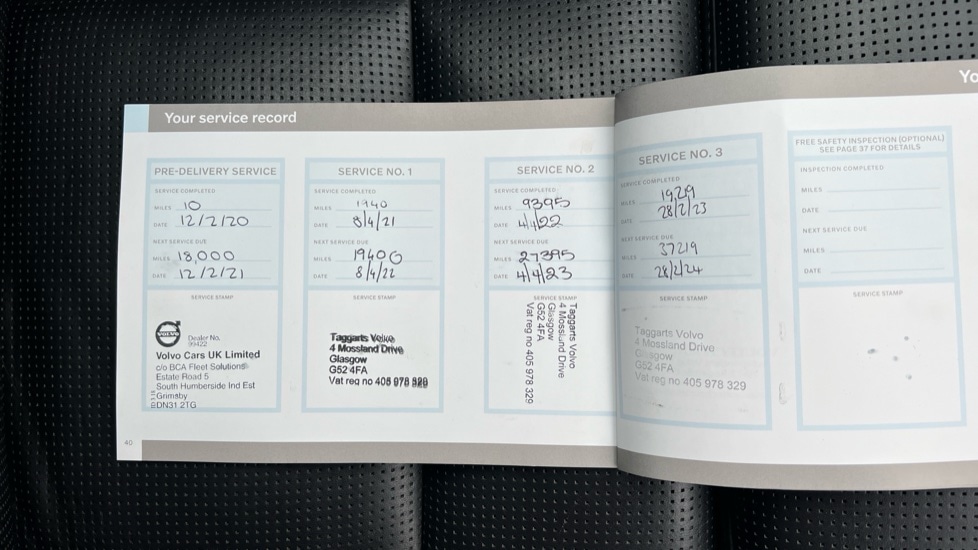 Yo
Your service record
PRE-DELIVERY SERVICE
SERVICE COMPLETED
MILES 10
DATE 12/2/20
NEXT SERVICE DUE
MILES 18,000
DATE 12/2/21
SERVICE STAMP
VOLVO
Dealer No.
99422
Volvo Cars UK Limited
c/o BCA Fleet Solutions
Estate Road 5
South Humberside Ind Est
Grimsby
DN31 2TG
SERVICE NO. 1
SERVICE COMPLETED
MILES 1940
DATE 8/4/21
NEXT SERVICE DUE
MILES 19400
DATE 8/4/22
SERVICE STAMP
Taggarts Volvo
4 Mossland Drive
Glasgow
G52 4FA
Vat reg no 405 978 329
SERVICE NO. 2
SERVICE COMPLETED
MILES 9395
DATE 4/4/22
NEXT SERVICE DUE
MILES 27395
DATE 4/4/23
SERVICE STAMP
Taggarts Volvo
4 Mossland Drive
Glasgow
G52 4FA
Vat reg no 405 978 329
SERVICE NO. 3
SERVICE COMPLETED
MILES 19,219
DATE 28/2/23
NEXT SERVICE DUE
MILES 37219
DATE 28/2/24
SERVICE STAMP
Taggarts Volvo
4 Mossland Drive
Glasgow
G52 4FA
Vat reg no 405 978 329
FREE SAFETY INSPECTION (OPTIONAL)
SEE PAGE 37 FOR DETAILS
INSPECTION COMPLETED
MILES
DATE
NEXT SERVICE DUE
MILES
DATE
SERVICE STAMP
40